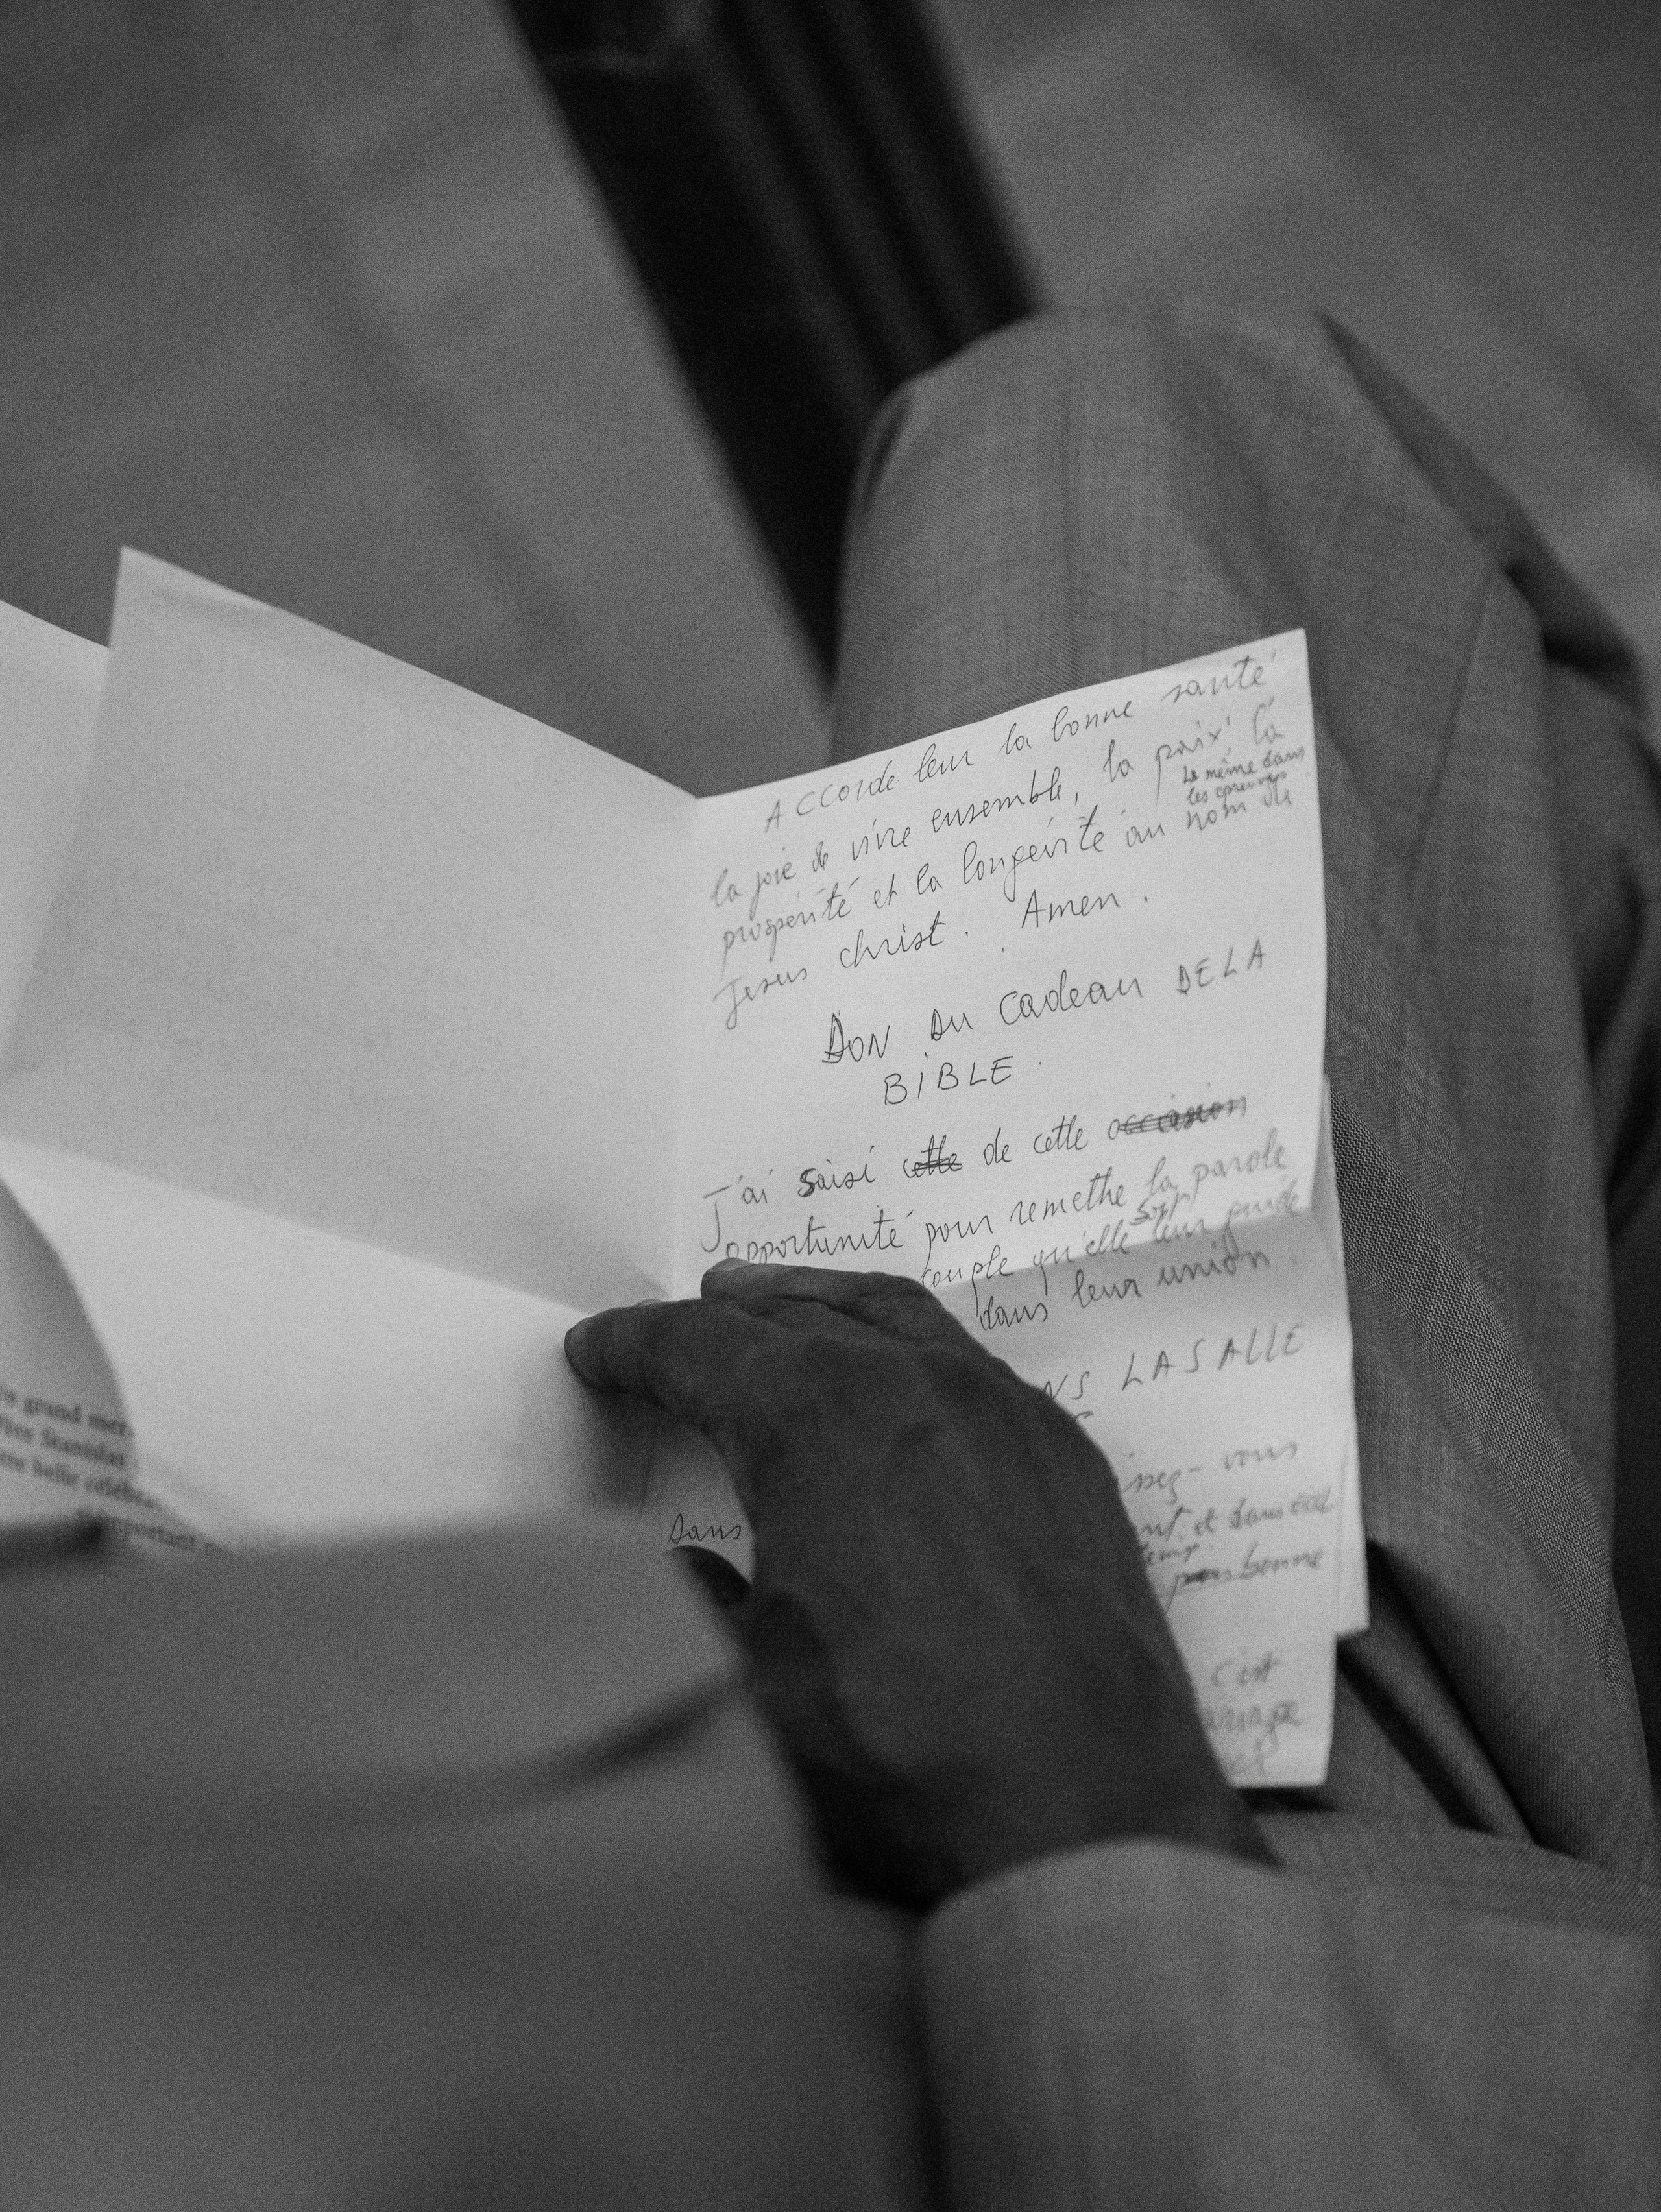 Accorde leur la bonne santé
la joie de vivre ensemble, la paix la
la même dans
les épreuves
prospérité et la longévité au nom de
Jesus christ. Amen.
DON DU Cadeau DE LA
BIBLE.
J'ai saisi cette de cette occasion
opportunité pour remethe la parole
soit
couple qu'elle leur guide
dans leur union.
LASALLE
ssez-vous
et dans
temps
bonne
Dans
c'est
Un grand mer
Père Stanislas
belle célébra
important